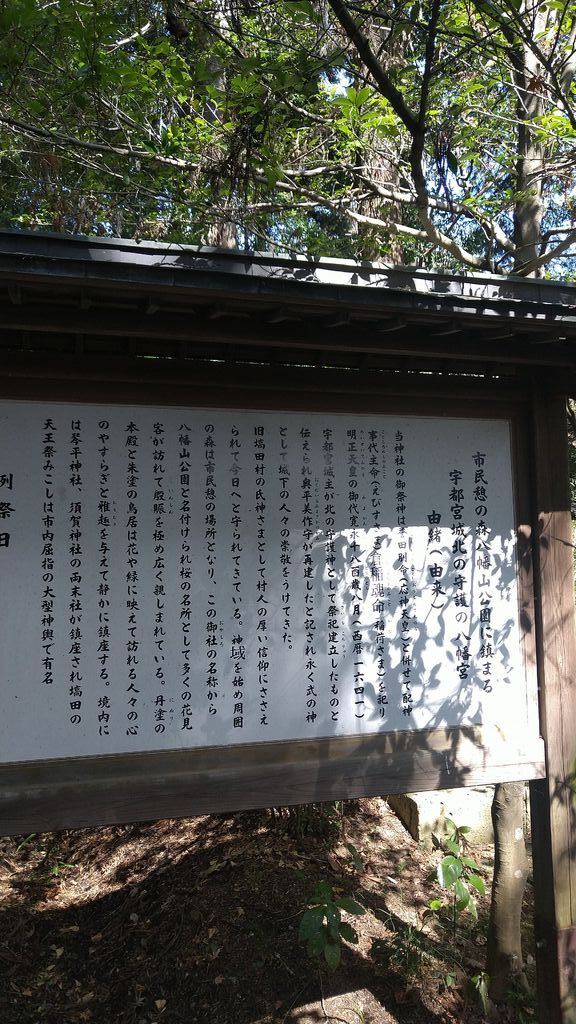 市民憩の森八幡山公園に鎮まる
宇都宮城北の守護の八幡宮
由緒(由来)
当神社の御祭神は誉田別命(応神天皇)と併せて配神
事代主命(えびすさま)倉稲魂命(稲荷さま)を祀り
明正天皇の御代寛永十八百歳八月(西暦一六四一)
宇都宮城主が北の守護神として祭祀建立したものと
伝えられ奥平美作守が再建したと記され永く武の神
として城下の人々の崇敬をうけてきた。
旧塙田村の氏神さまとして村人の厚い信仰にささえ
られて今日へと守られてきている。神域を始め周囲
の森は市民憩の場所となり、この御社の名称から
八幡山公園と名付けられ桜の名所として多くの花見
客が訪れて殷賑を極め広く親しまれている。丹塗の
本殿と朱塗の鳥居は花や緑に映えて訪れる人々の心
のやすらぎと雅趣を与えて静かに鎮座する。境内に
は琴平神社、須賀神社の両末社が鎮座され塙田の
天王祭みこしは市内屈指の大型神輿で有名
例祭日